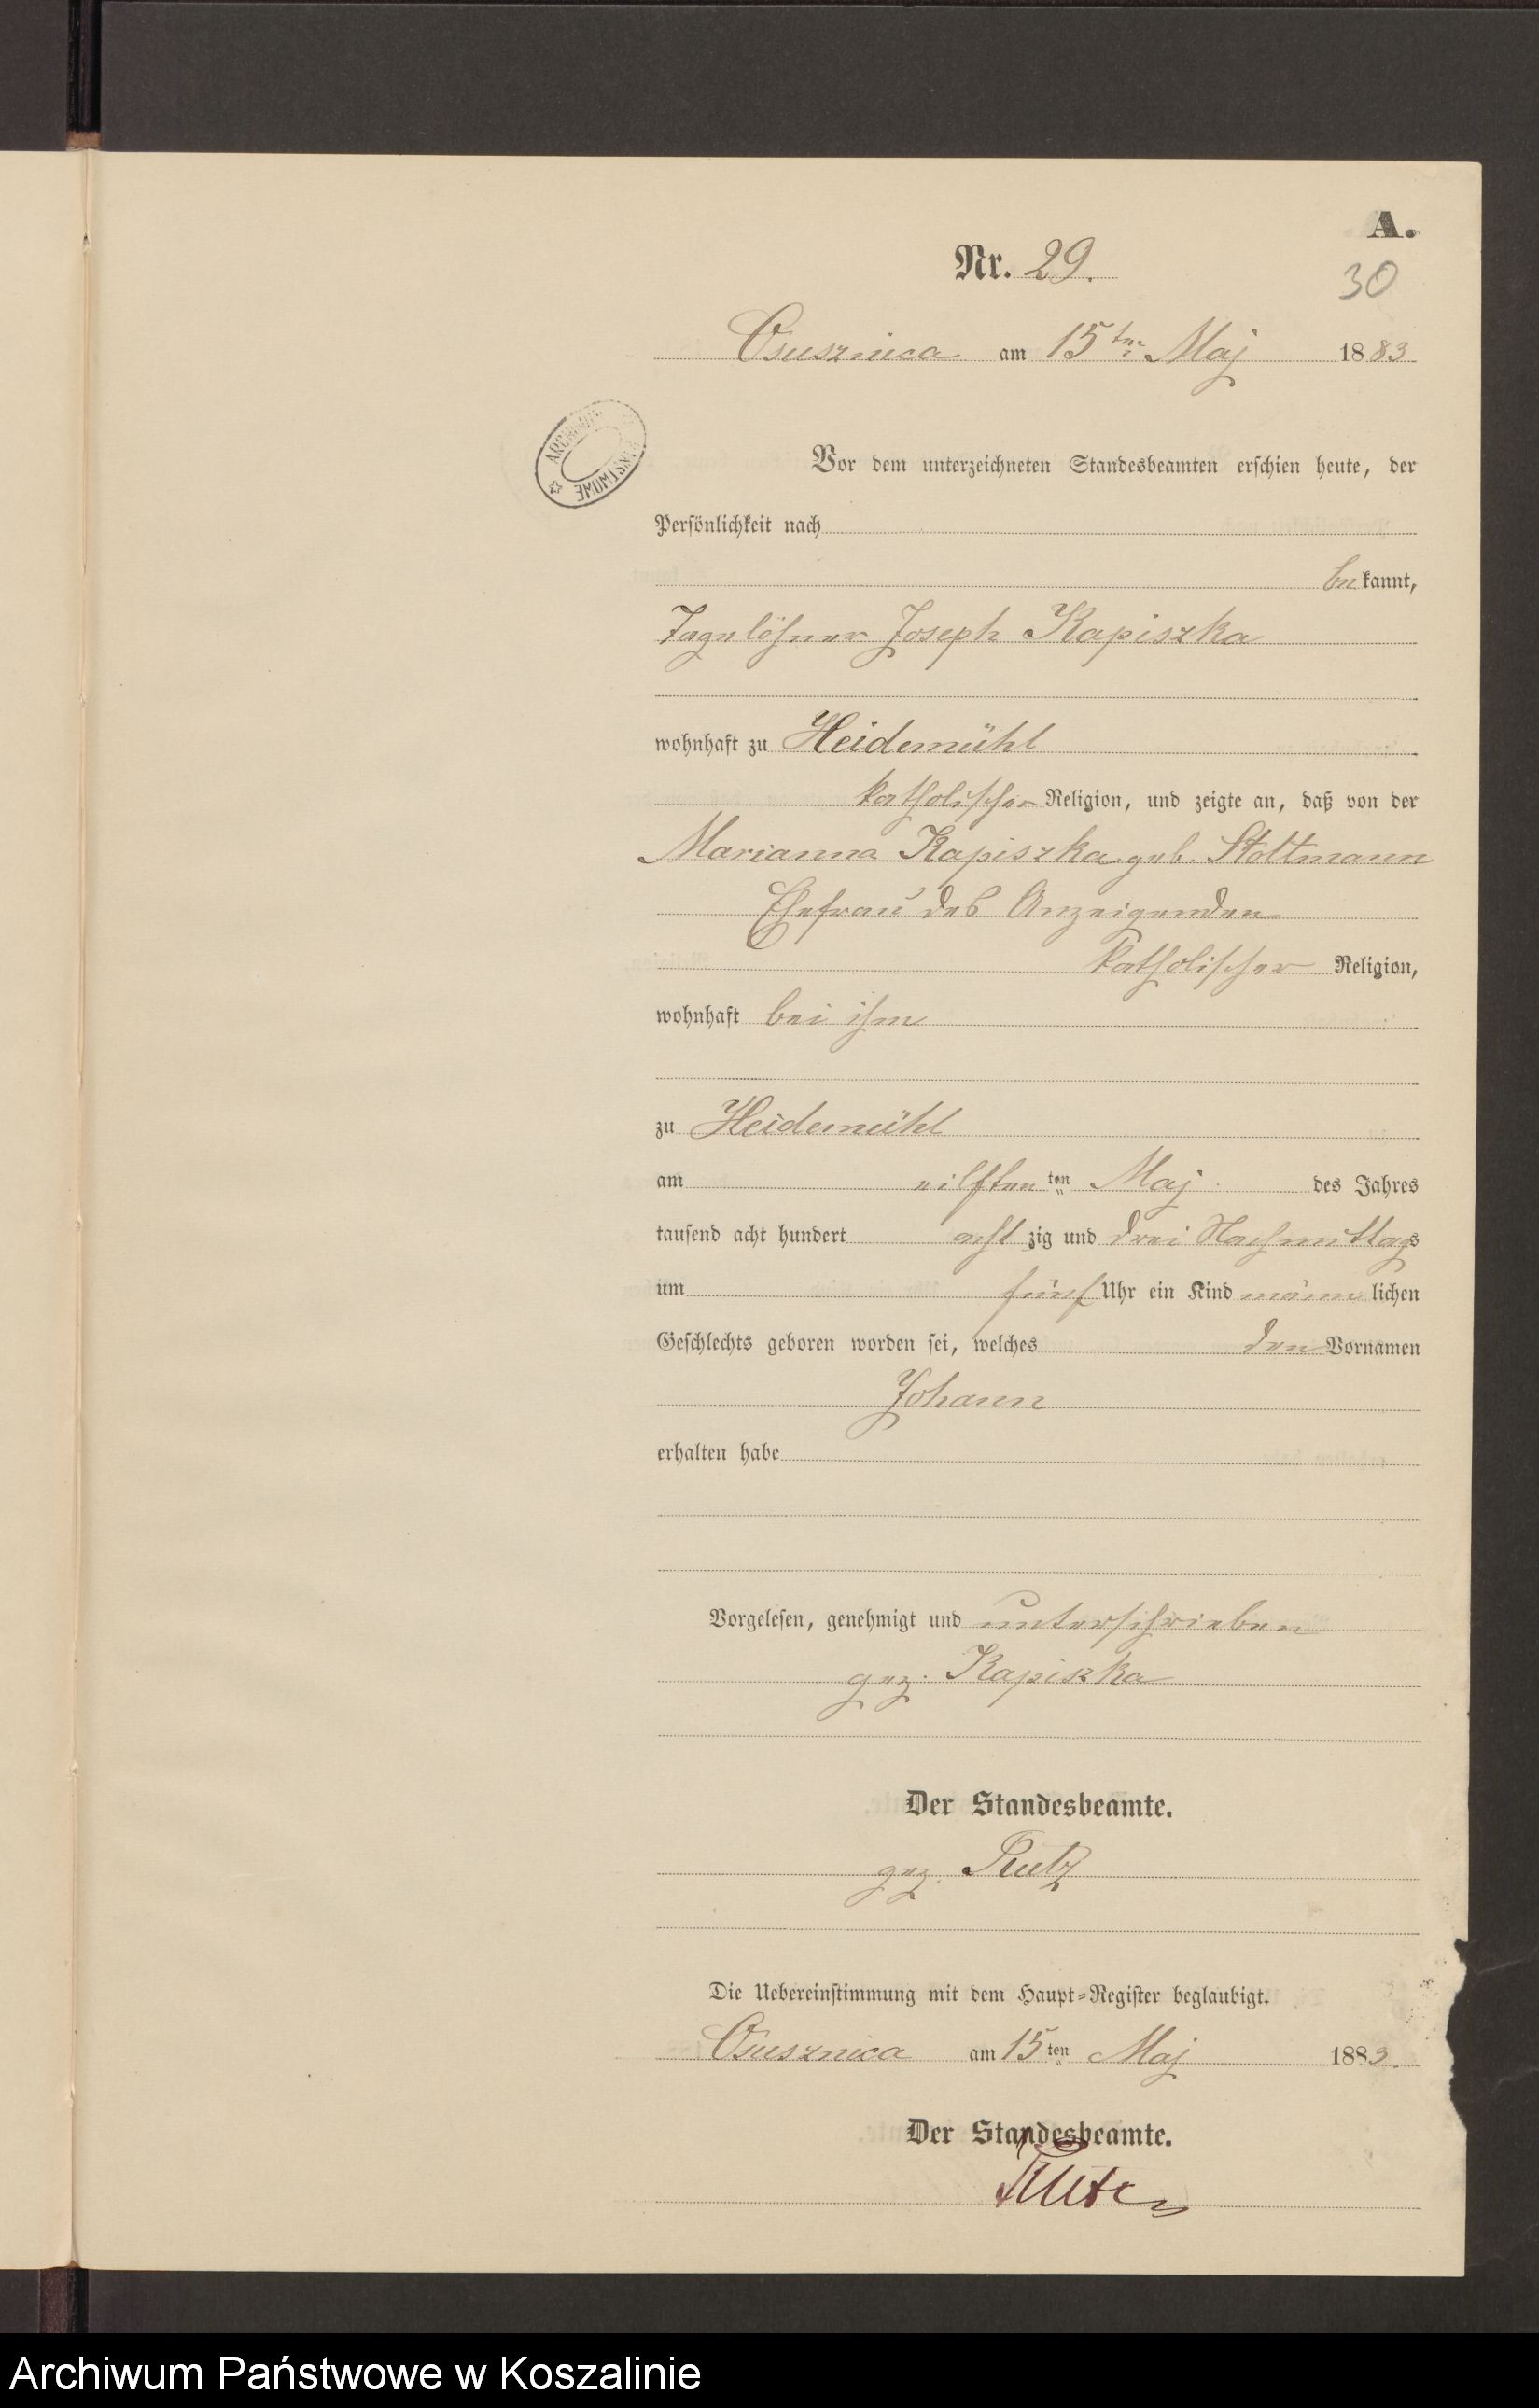 A.
Nr. 29.
30
Osusznica am 15ten Maj 1883
ARCHIWUM PAŃSTWOWE
Vor dem unterzeichneten Standesbeamten erschien heute, der
Persönlichkeit nach
bekannt,
Tagelöhner Joseph Kapiszka
wohnhaft zu Heidemühl
katholischer Religion, und zeigte an, daß von der
Marianna Kapiszka geb. Stoltmann
Ehefrau des Anzeigenden
katholischer Religion,
wohnhaft bei ihm
zu Heidemühl
am eilften ten Maj des Jahres
tausend acht hundert acht zig und drei Nachmittags
um fünf Uhr ein Kind männlichen
Geschlechts geboren worden sei, welches den Vornamen
Johann
erhalten habe
Vorgelesen, genehmigt und unterschrieben
gez. Kapiszka
Der Standesbeamte.
gez.
Die Uebereinstimmung mit dem Haupt-Register beglaubigt.
Osusznica am 15ten Maj 1883.
Der Standesbeamte.
Archiwum Państwowe w Koszalinie